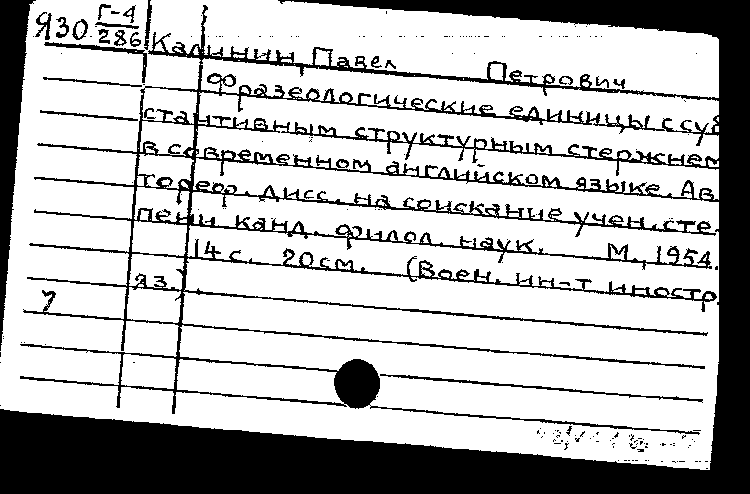 Я30 Г-4
286
Калинин, Павел Петрович
Фразеологические единицы с суб
стантивным структурным стержнем
в современном английском языке. Ав
тореф. дисс. на соискание учен. сте-
пени канд. филол. наук. М., 1954.
14 с. 20 см. (Воен. ин-т иностр.
яз.).
7